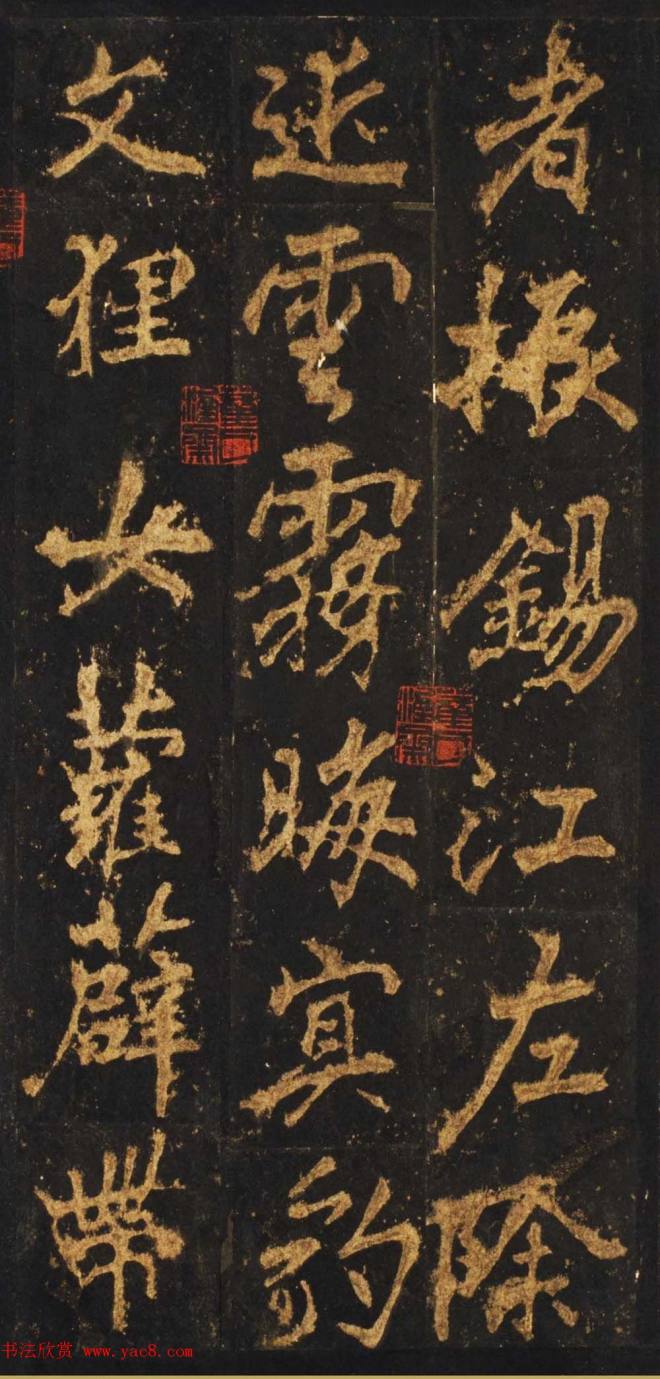 者振錫江左除
述雲霧晦冥豹
文狸女蘿薜帶
书法欣赏 www.yac8.com